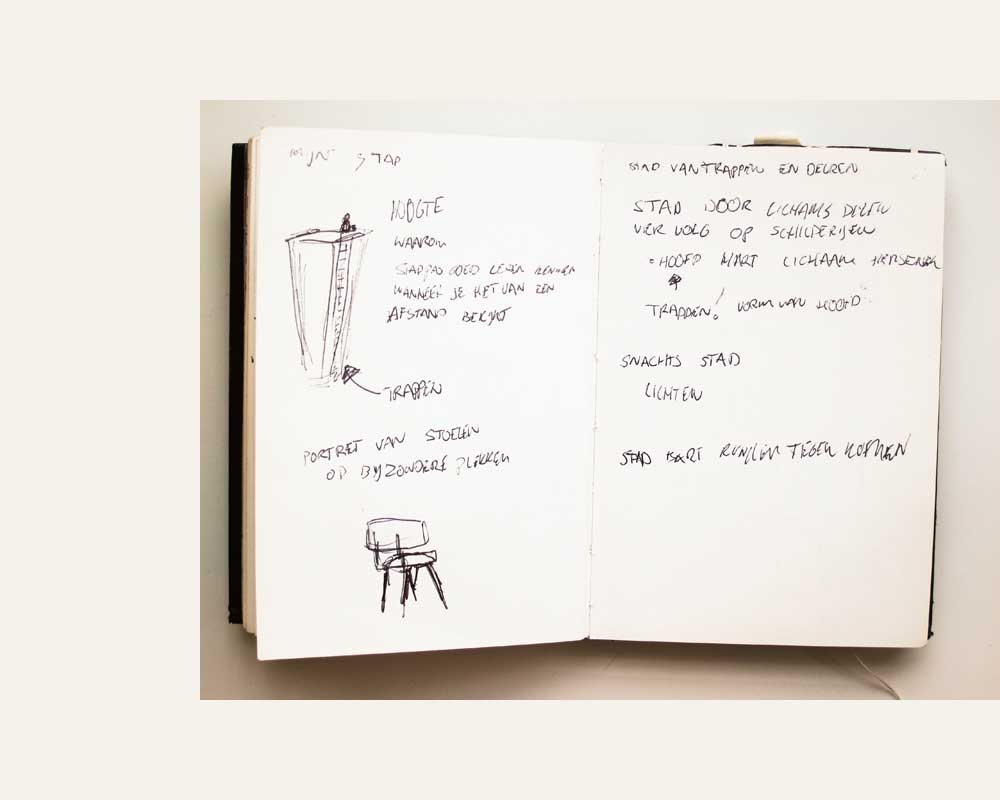 MIJN STAD
HOOGTE
WAAROM
STAD PAS GOED LEREN KENNEN
WANNEER JE HET VAN EEN
AFSTAND BEKIJKT
TRAPPEN
PORTRET VAN STOELEN
OP BIJZONDERE PLEKKEN
STAD VAN TRAPPEN EN DEUREN
STAD DOOR LICHAAMS DELEN
VERVOLG OP SCHILDERIJEN
HOOFD HART LICHAAM HERSENEN
TRAPPEN! VORM VAN HOOFD
SNACHTS STAD
LICHTEN
STAD TEGEN